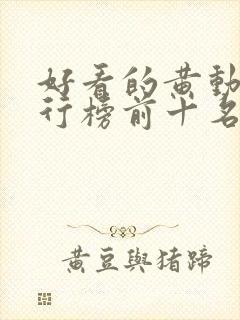 好看的黄動
行榜前十名
黃豆與猪蹄